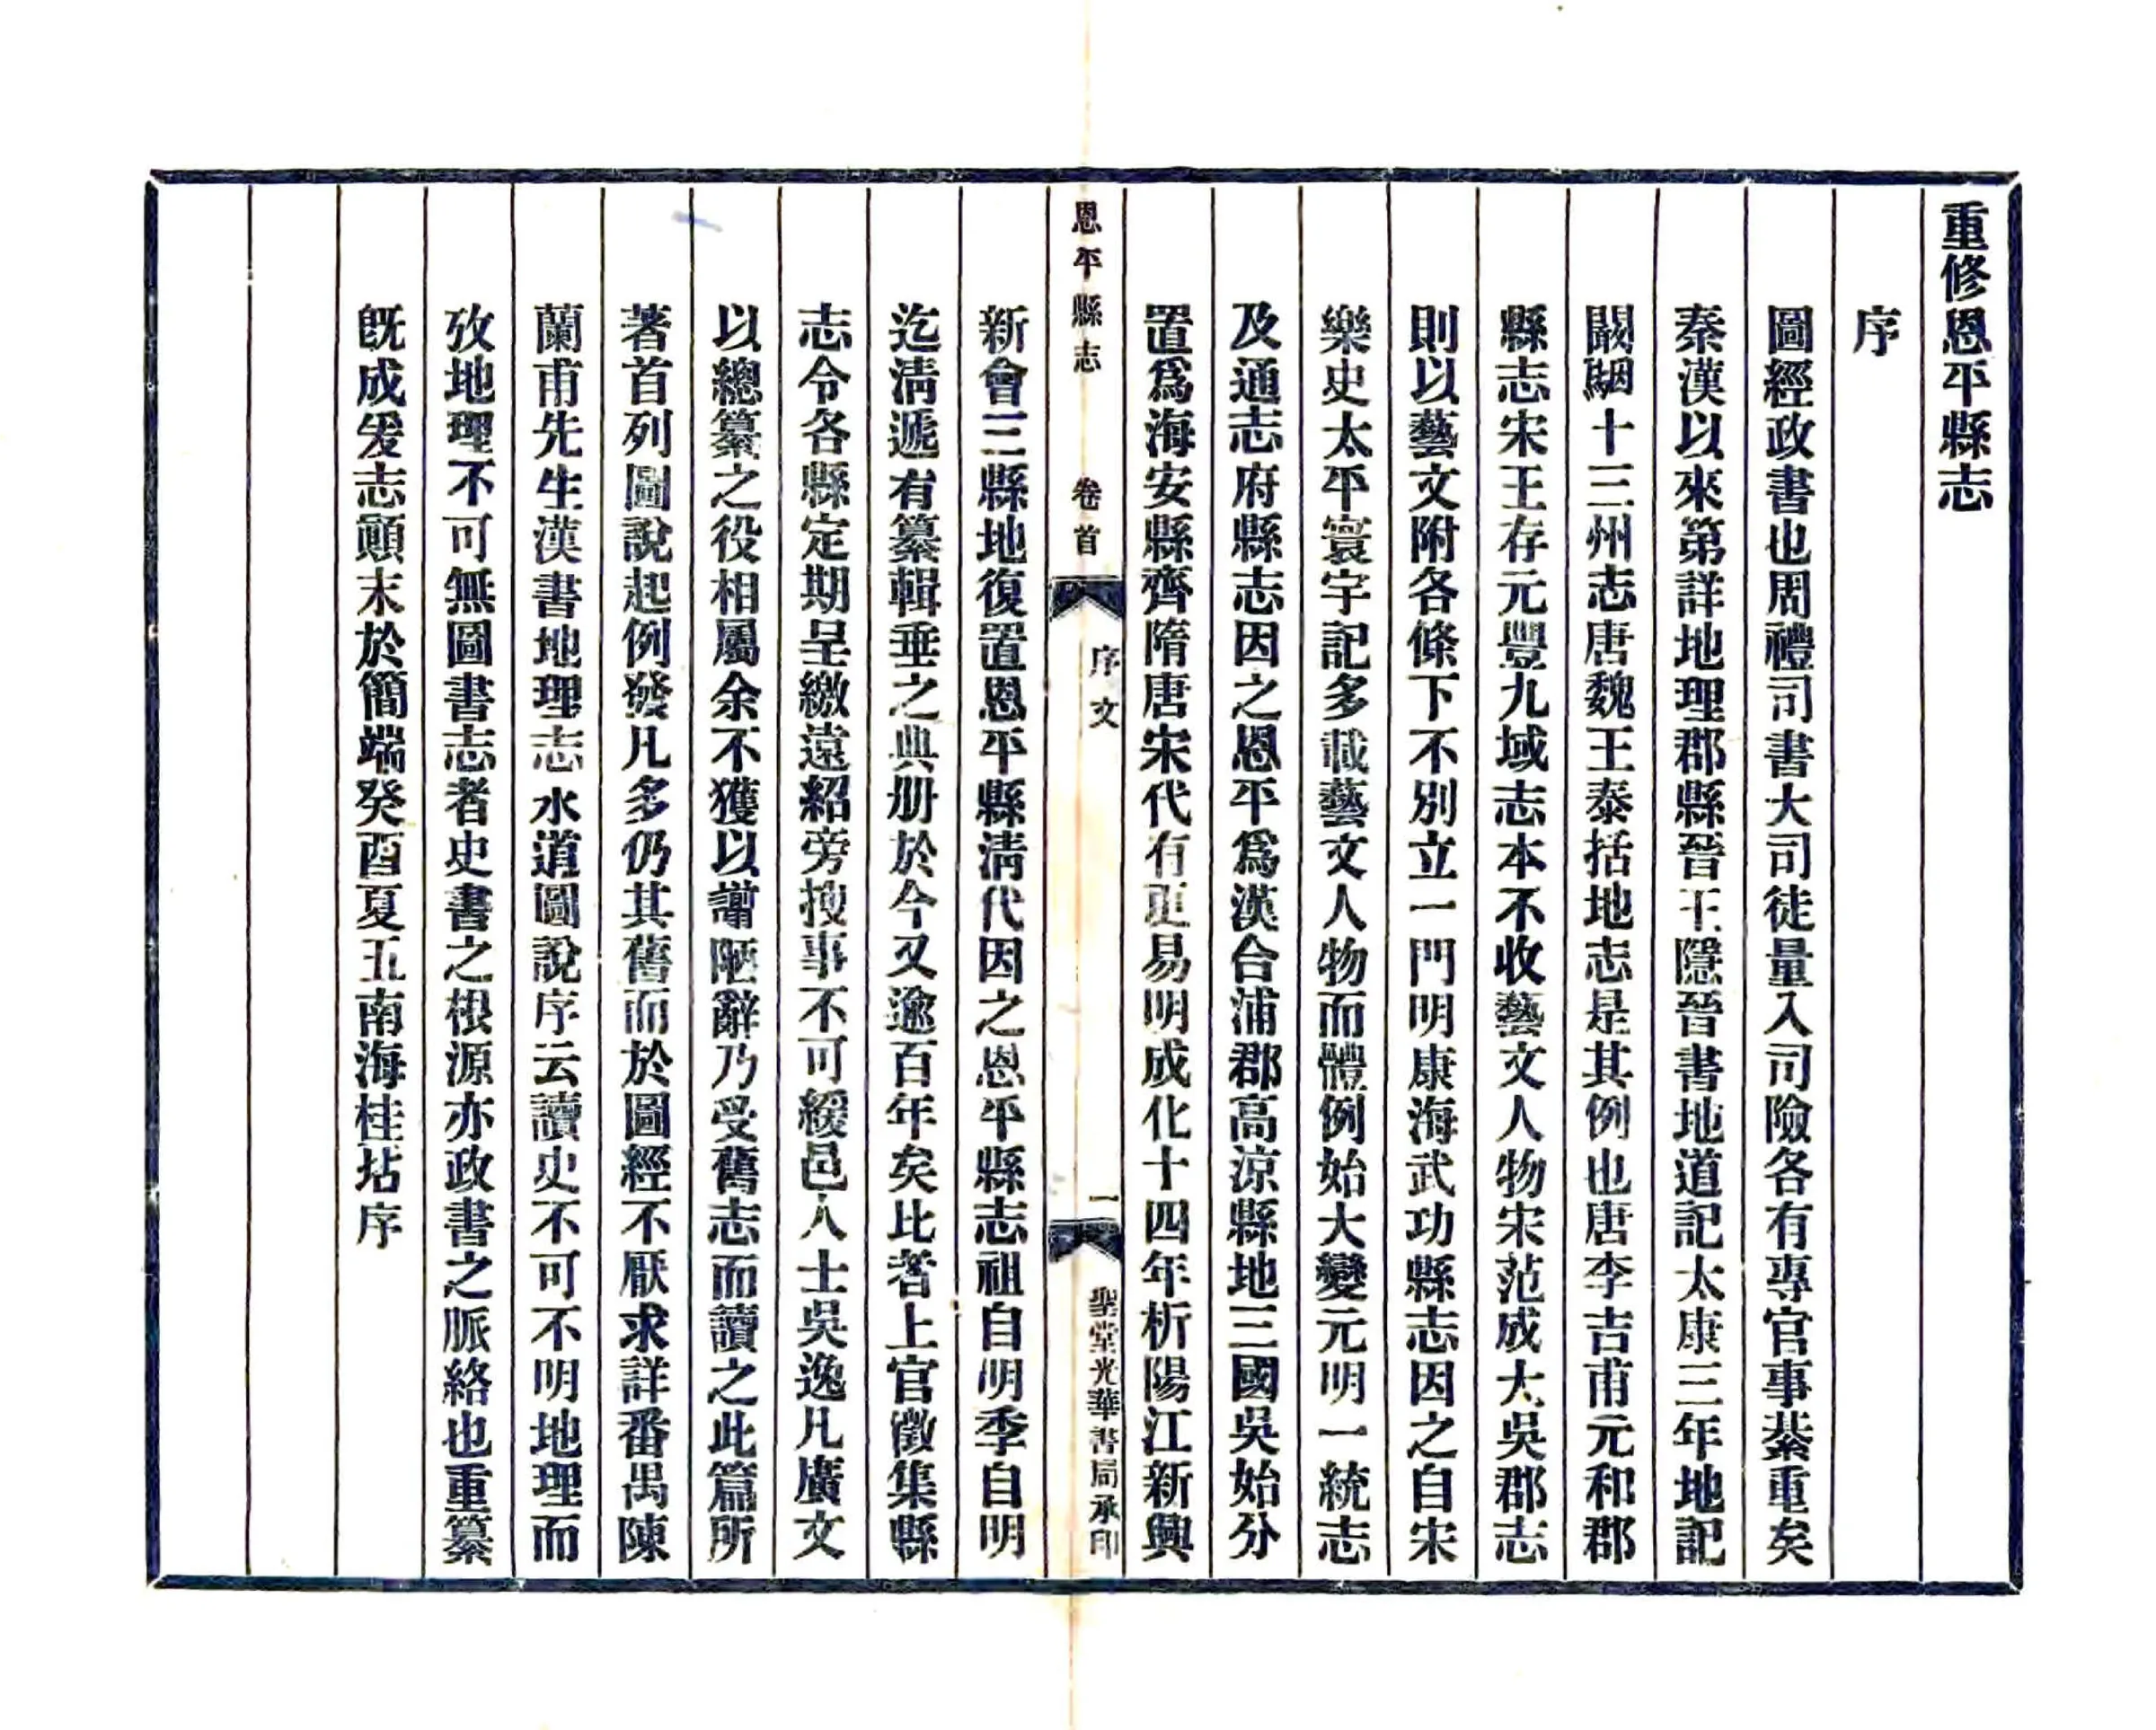 重修恩平縣志
序
圖經政書也周禮司書大司徒量入司險各有專官事綦重矣
秦漢以來第詳地理郡縣晉王隱晉書地道記太康三年地記
闞駰十三州志唐魏王泰括地志是其例也唐李吉甫元和郡
縣志宋王存元豐九域志本不收藝文人物宋范成大吳郡志
則以藝文附各條下不別立一門明康海武功縣志因之自宋
樂史太平寰宇記多載藝文人物而體例始大變元明一統志
及通志府縣志因之恩平爲漢合浦郡高涼縣地三國吳始分
置爲海安縣齊隋唐宋代有更易明成化十四年析陽江新興
恩平縣志 卷首 序文 一 聖堂光華書局承印
新會三縣地復置恩平縣清代因之恩平縣志祖自明季自明
迄清遞有纂輯垂之典册於今又逾百年矣比者上官徵集縣
志令各縣定期呈繳遠紹旁搜事不可緩邑人士吳逸凡廣文
以總纂之役相屬余不獲以譾陋辭乃受舊志而讀之此篇所
著首列圖說起例發凡多仍其舊而於圖經不厭求詳番禺陳
蘭甫先生漢書地理志水道圖說序云讀史不可不明地理而
攷地理不可無圖書志者史書之根源亦政書之脈絡也重纂
既成爰志顚末於簡端癸酉夏五南海桂坫序